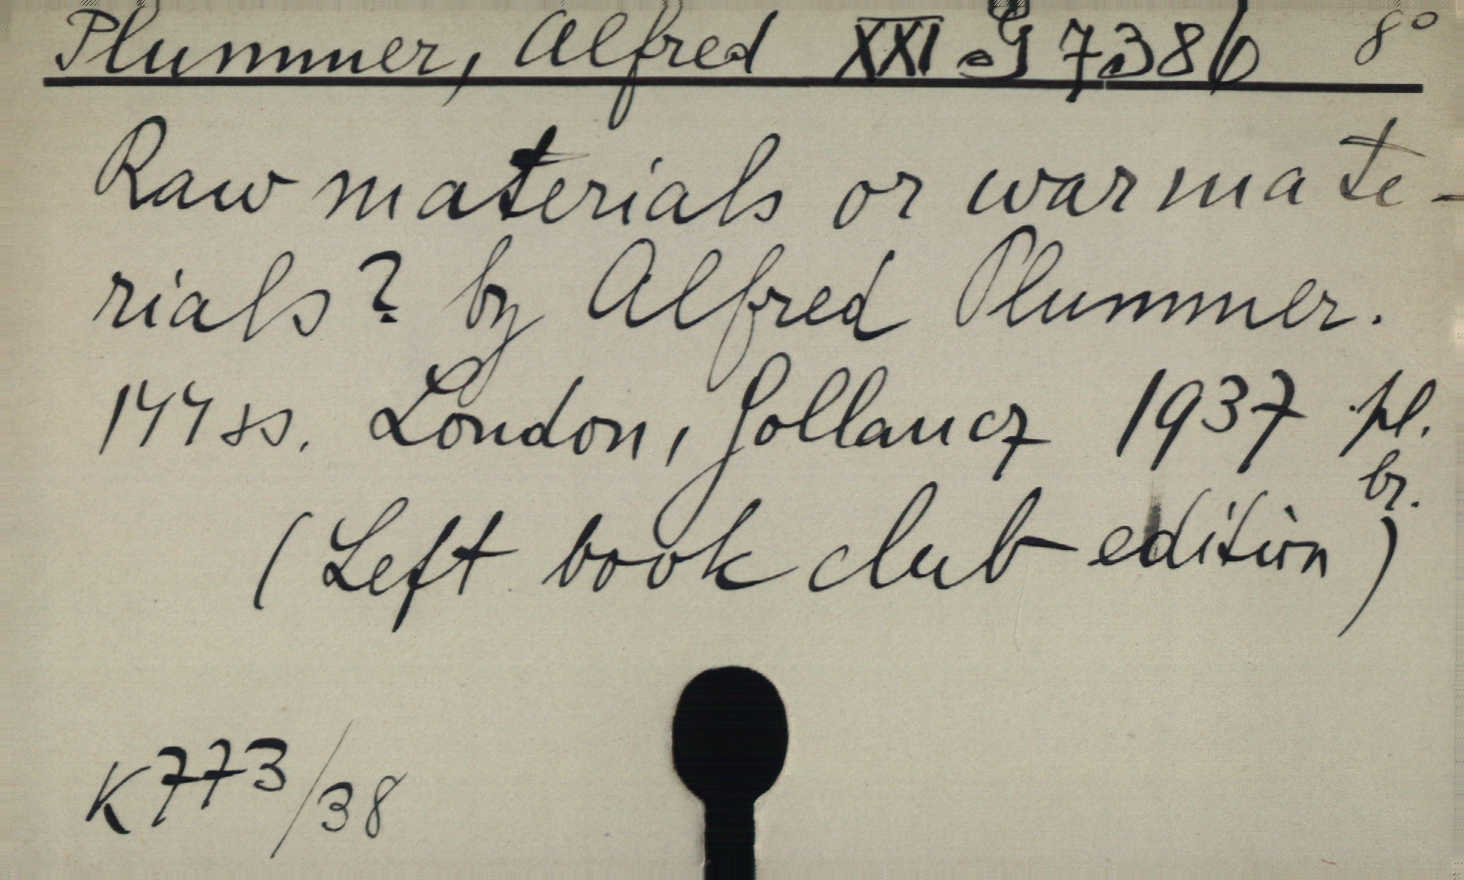 Plummer, Alfred XXI G 7386 8°
Raw materials or war mate-
rials? by Alfred Plummer.
144 ss. London, Gollancz 1937 pl.
br.
(Left book club edition)
K 773/38